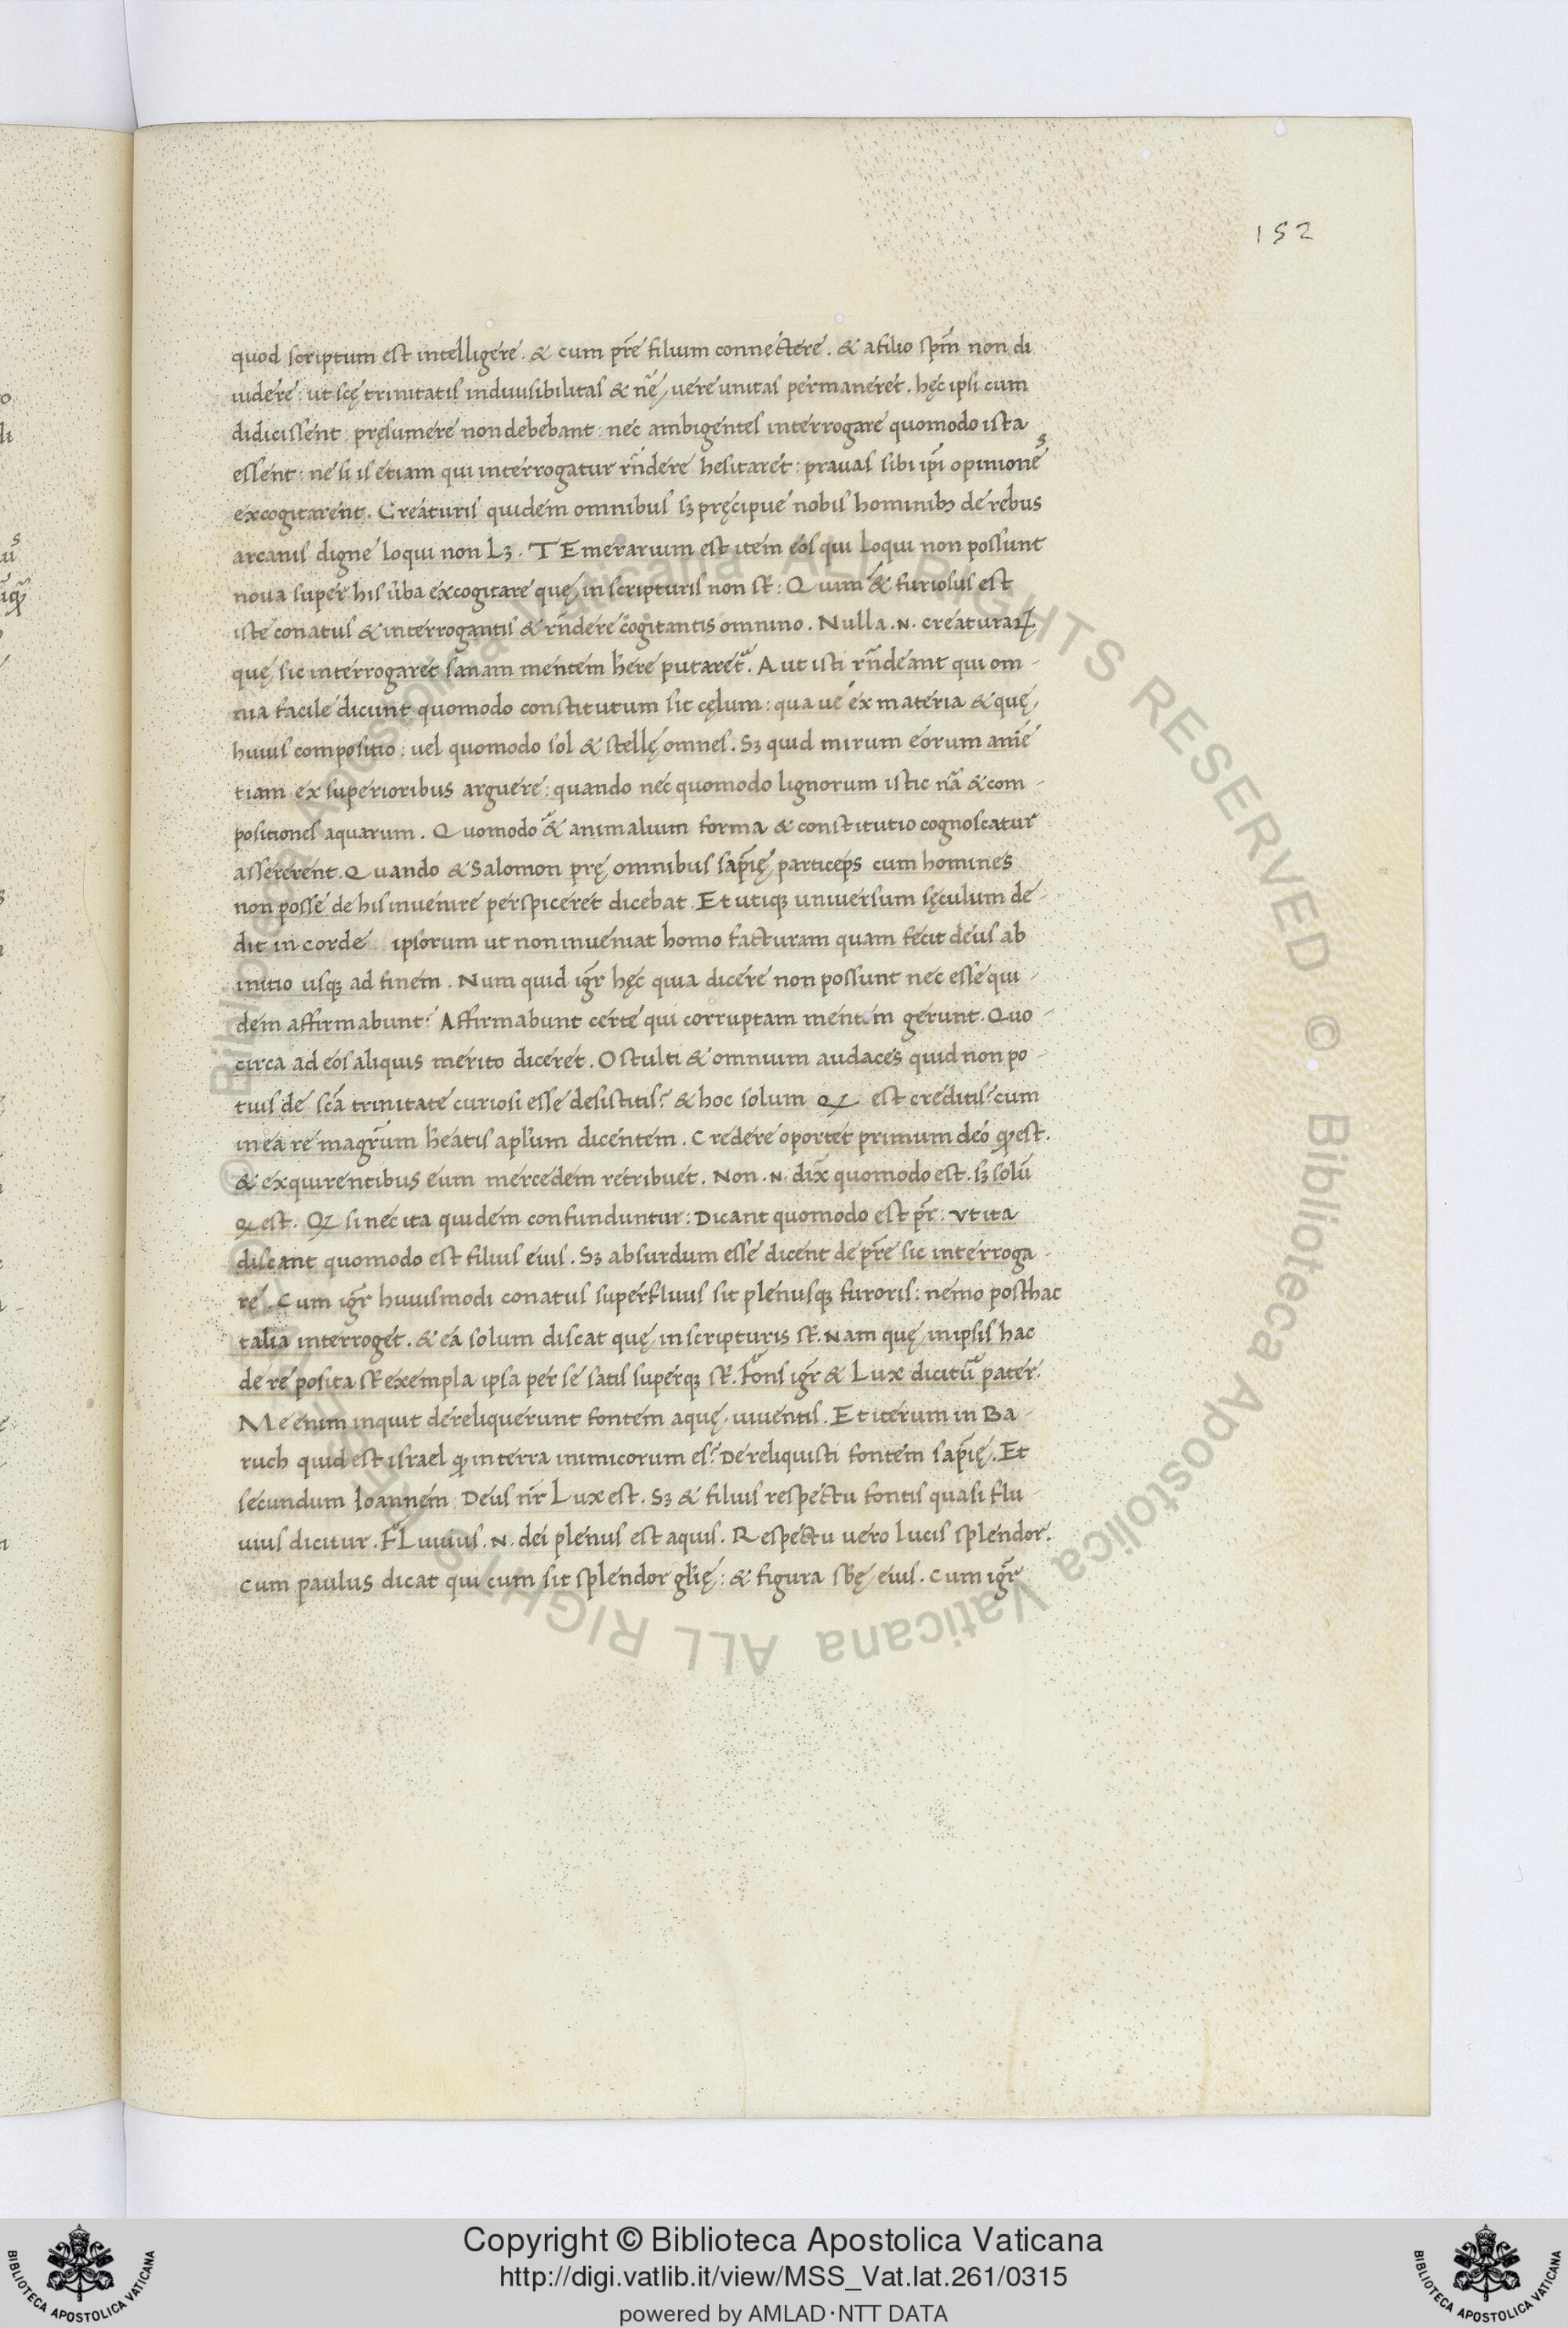 152
quod scriptum est intelligere. & cum pr̃e filium connectere. & a filio spm̃ non di
uidere: ut scę trinitatis indiuisibilitas & nẽ, uere unitas permaneret. hęc ipsi cum
didicissent: pręsumere non debebant: nec ambigentes interrogare quomodo ista
essent: ne si is etiam qui interrogatur rñdere hesitaret: prauas sibi ipĩ opiniones
excogitarent. Creaturis quidem omnibus sꝫ pręcipue nobis hominibꝫ de rebus
arcanis digne loqui non Lꝫ. TEmerarium est item eos qui loqui non possunt
noua super his ũba excogitare quę in scripturis non st̃: Quam & furiosus est
iste conatus & interrogantis & rñdere cogitantis omnino. Nulla .N. creaturaꝝ
quę sic interrogaret sanam mentem h̃ere putaret̃. Aut isti rñdeant qui om-
nia facile dicunt quomodo constitutum sit cęlum: qua ue ex materia & quę
huius compositio: uel quomodo sol & stellę omnes. Sꝫ quid mirum eorum amẽ
tiam ex superioribus arguere: quando nec quomodo lignorum istic nã & com-
positiones aquarum. Quomodo & animalium forma & constitutio cognoscatur
assererent. Quando & Salomon prę omnibus sap̃ię particeps cum homines
non posse de his inuenire perspiceret dicebat. Et utiqꝫ uniuersum sęculum de-
dit in corde ipsorum ut non inueniat homo facturam quam fecit deus ab
initio usqꝫ ad finem. Num quid igr̃ hęc quia dicere non possunt nec esse qui-
dem affirmabunt? Affirmabunt certe qui corruptam mentem gerunt. Quo-
circa ad eos aliquis merito diceret. O stulti & omnium audaces quid non po-
tius de scã trinitate curiosi esse desistitis? & hoc solum ꝙ est creditis? cum
in ea re magr̃um h̃eatis aplũm dicentem. Credere oportet primum deo ꝙ est.
& exquirentibus eum mercedem retribuet. Non .N. dix̃ quomodo est. sꝫ solũ
ꝙ est. Qꝫ si nec ita quidem confunduntur: Dicant quomodo est pr̃: Vt ita
discant quomodo est filius eius. Sꝫ absurdum esse dicent de pr̃e sic interroga-
re. Cum igr̃ huiusmodi conatus superfluus sit plenusqꝫ furoris: nemo posthac
talia interroget. & ea solum discat quę in scripturis st̃. Nam quę in ipsis hac
de re posita st̃ exempla ipsa per se satis superqꝫ st̃. Fons igr̃ & Lux dicitũ pater.
Me enim inquit dereliquerunt fontem aquę uiuentis. Et iterum in Ba-
ruch quid est israel ꝙ in terra inimicorum es? Dereliquisti fontem sap̃ię. Et
secundum Ioannem: Deus nr̃ Lux est. Sꝫ & filius respectu fontis quasi flu-
uius dicitur. FLuuius .N. dei plenus est aquis. Respectu uero lucis splendor.
Cum paulus dicat qui cum sit splendor gl̃ię: & figura sb̃ę eius. Cum igr̃
© Biblioteca Apostolica Vaticana ALL RIGHTS RESERVED © Biblioteca Apostolica Vaticana ALL RIGHTS RESERVED
Copyright © Biblioteca Apostolica Vaticana
http://digi.vatlib.it/view/MSS_Vat.lat.261/0315
powered by AMLAD·NTT DATA
BIBLIOTECA APOSTOLICA VATICANA
BIBLIOTECA APOSTOLICA VATICANA